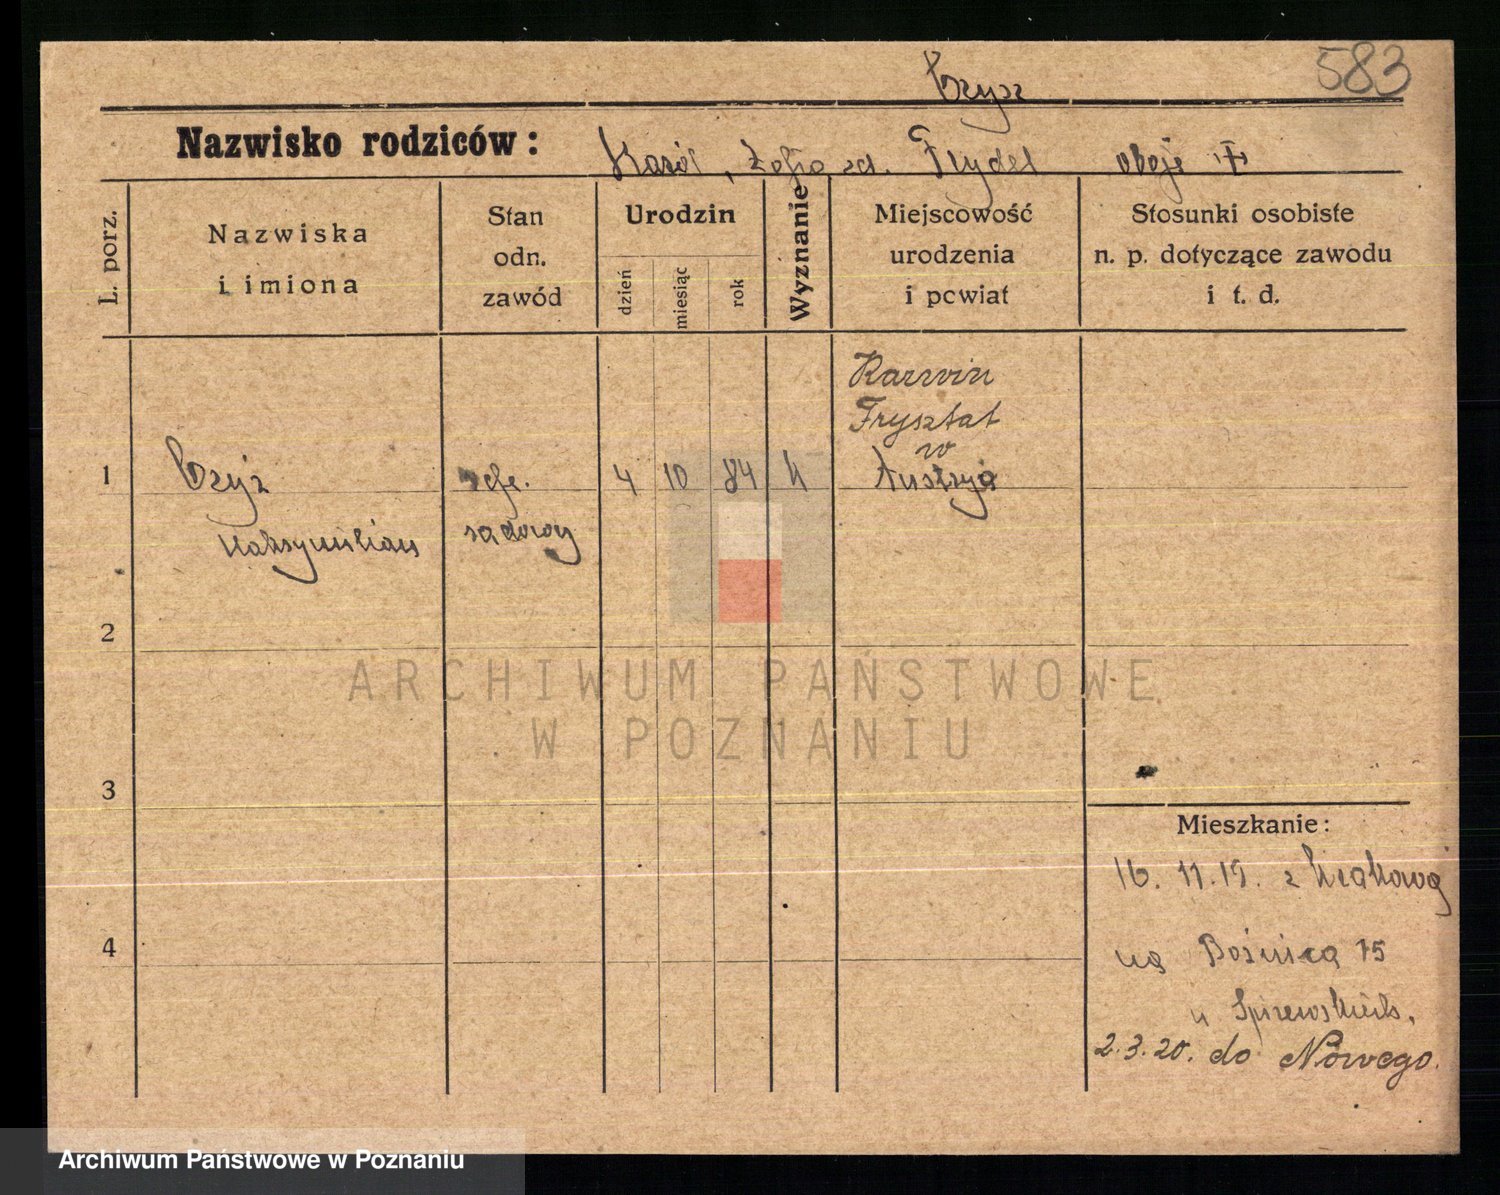 583
Czysz
Nazwisko rodziców: Karól, Zofia zd. Frydel oboje †
L. porz.
Nazwiska
i imiona
Stan
odn.
zawód
Urodzin
dzień
miesiąc
rok
Wyznanie
Miejscowość
urodzenia
i powiat
Stosunki osobiste
n. p. dotyczące zawodu
i t. d.
1
Czyż
Maksymilian
sądowy
4 10 84 k
Karwin
Frysztat
w
Austrya
2
3
4
Mieszkanie:
16. 11. 19. z Krakowa
na Bożnica 15
u
2.3.20. do Nowego.
ARCHIWUM PAŃSTWOWE
W POZNANIU
Archiwum Państwowe w Poznaniu